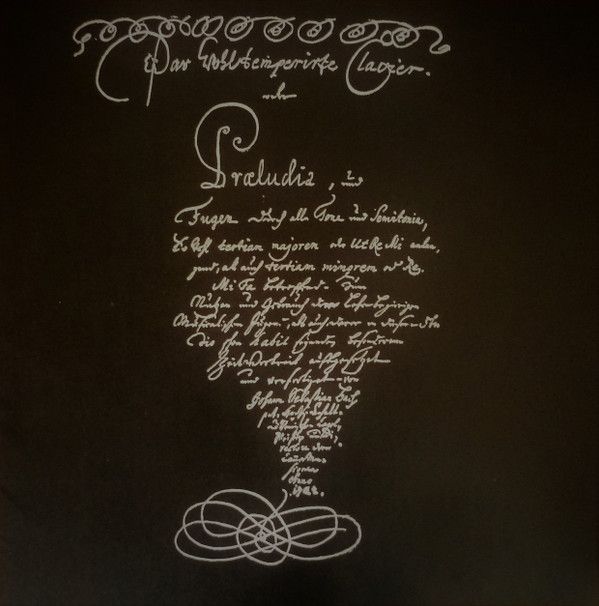 Das Wohltemperirte Clavier.
oder
Præludia, und
Fugen durch alle Tone und Semitonia,
So wohl tertiam majorem als Ut Re Mi anlan-
gend, als auch tertiam minorem od Re
Mi Fa betreffend. Zum
Nutzen und Gebrauch der Lehrbegierigen
Musicalischen Jugend, als auch derer in diesem stu-
dio schon habil seyenden besonderem
Zeitvertreib auffgesetzet
und verfertiget von
Johann Sebastian Bach
p. t.
Anno
1722.